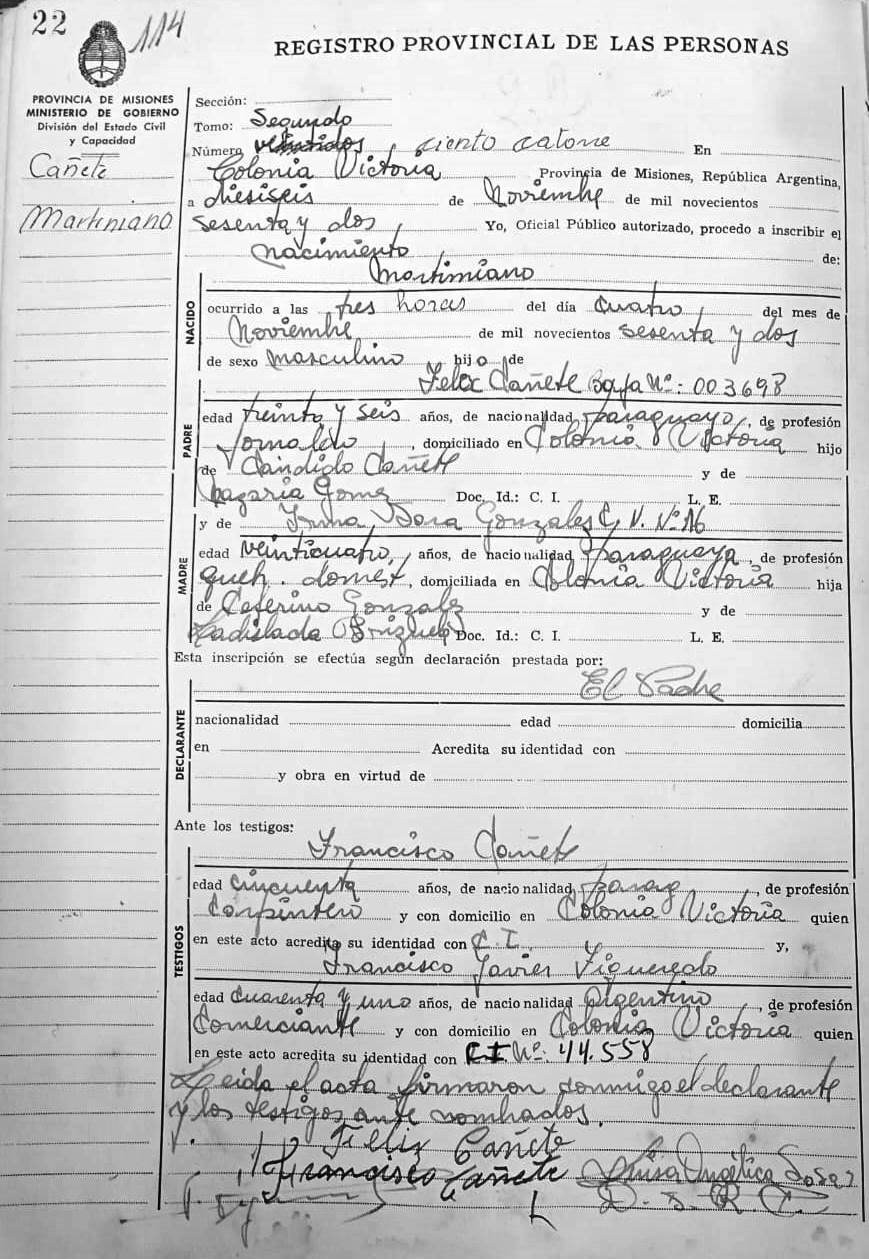 22 114
REGISTRO PROVINCIAL DE LAS PERSONAS
PROVINCIA DE MISIONES
MINISTERIO DE GOBIERNO
División del Estado Civil
y Capacidad
Cañete
Martiniano
Sección:
Tomo: Segundo
Número veintidos, ciento catorce En
Colonia Victoria Provincia de Misiones, República Argentina,
a diesiseis de Noviembre de mil novecientos
sesenta y dos, Yo, Oficial Público autorizado, procedo a inscribir el
nacimiento de:
NACIDO
Martimiano
ocurrido a las tres horas del día cuatro, del mes de
Noviembre de mil novecientos sesenta y dos
de sexo masculino hijo de
PADRE
Felix Cañete Nº: 003698
edad treinta y seis años, de nacionalidad paraguayo, de profesión
Jornalero, domiciliado en Colonia Victoria hijo
de Candido Cañete y de
Gomez Doc. Id.: C. I. L. E.
MADRE
y de Irma Dora Gonzales C. V. Nº 16
edad veinticuatro, años, de nacionalidad paraguaya, de profesión
queh. domest, domiciliada en Colonia Victoria hija
de Ceferino Gonzalez y de
Ladislada Brizuela Doc. Id.: C. I. L. E.
Esta inscripción se efectúa según declaración prestada por:
El Padre
DECLARANTE
nacionalidad edad domicilia
en Acredita su identidad con
y obra en virtud de
Ante los testigos:
Francisco Cañete
TESTIGOS
edad cincuenta años, de nacionalidad, parag, de profesión
Carpintero y con domicilio en Colonia Victoria quien
en este acto acredita su identidad con C. I. y,
Francisco Javier Figueredo
edad cuarenta y uno años, de nacionalidad Argentino, de profesión
Comerciante y con domicilio en Colonia Victoria quien
en este acto acredita su identidad con C.I. Nº: 44.558
Leida el acta firmaron conmigo el declarante
y los testigos ante nombrados.
Feliz Cañete
Francisco Cañete Luisa Angélica Sosa